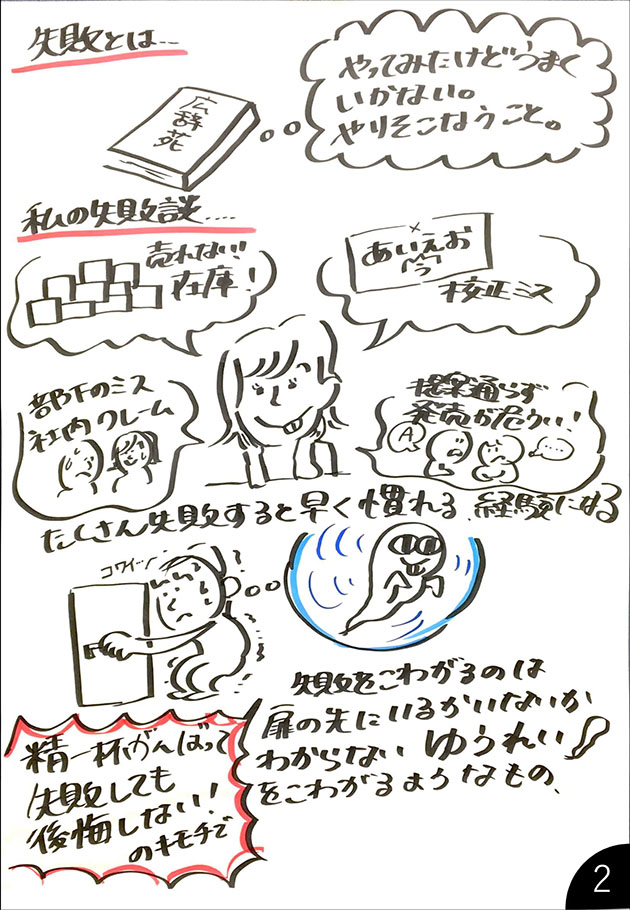 失敗とは…
広辞苑
やってみたけどうまく
いかない。
やりそこなうこと。
私の失敗談....
売れない!!
在庫!
あいえお
う
校正ミス
部下のミス
社内クレーム
提案通らず
発売が危うい!
A
....
たくさん失敗すると早く慣れる、経験になる
コワイッ
失敗をこわがるのは
扉の先にいるかいないか
わからない ゆうれい!
をこわがるようなもの、
精一杯がんばって
失敗しても
後悔しない!
のキモチで
2